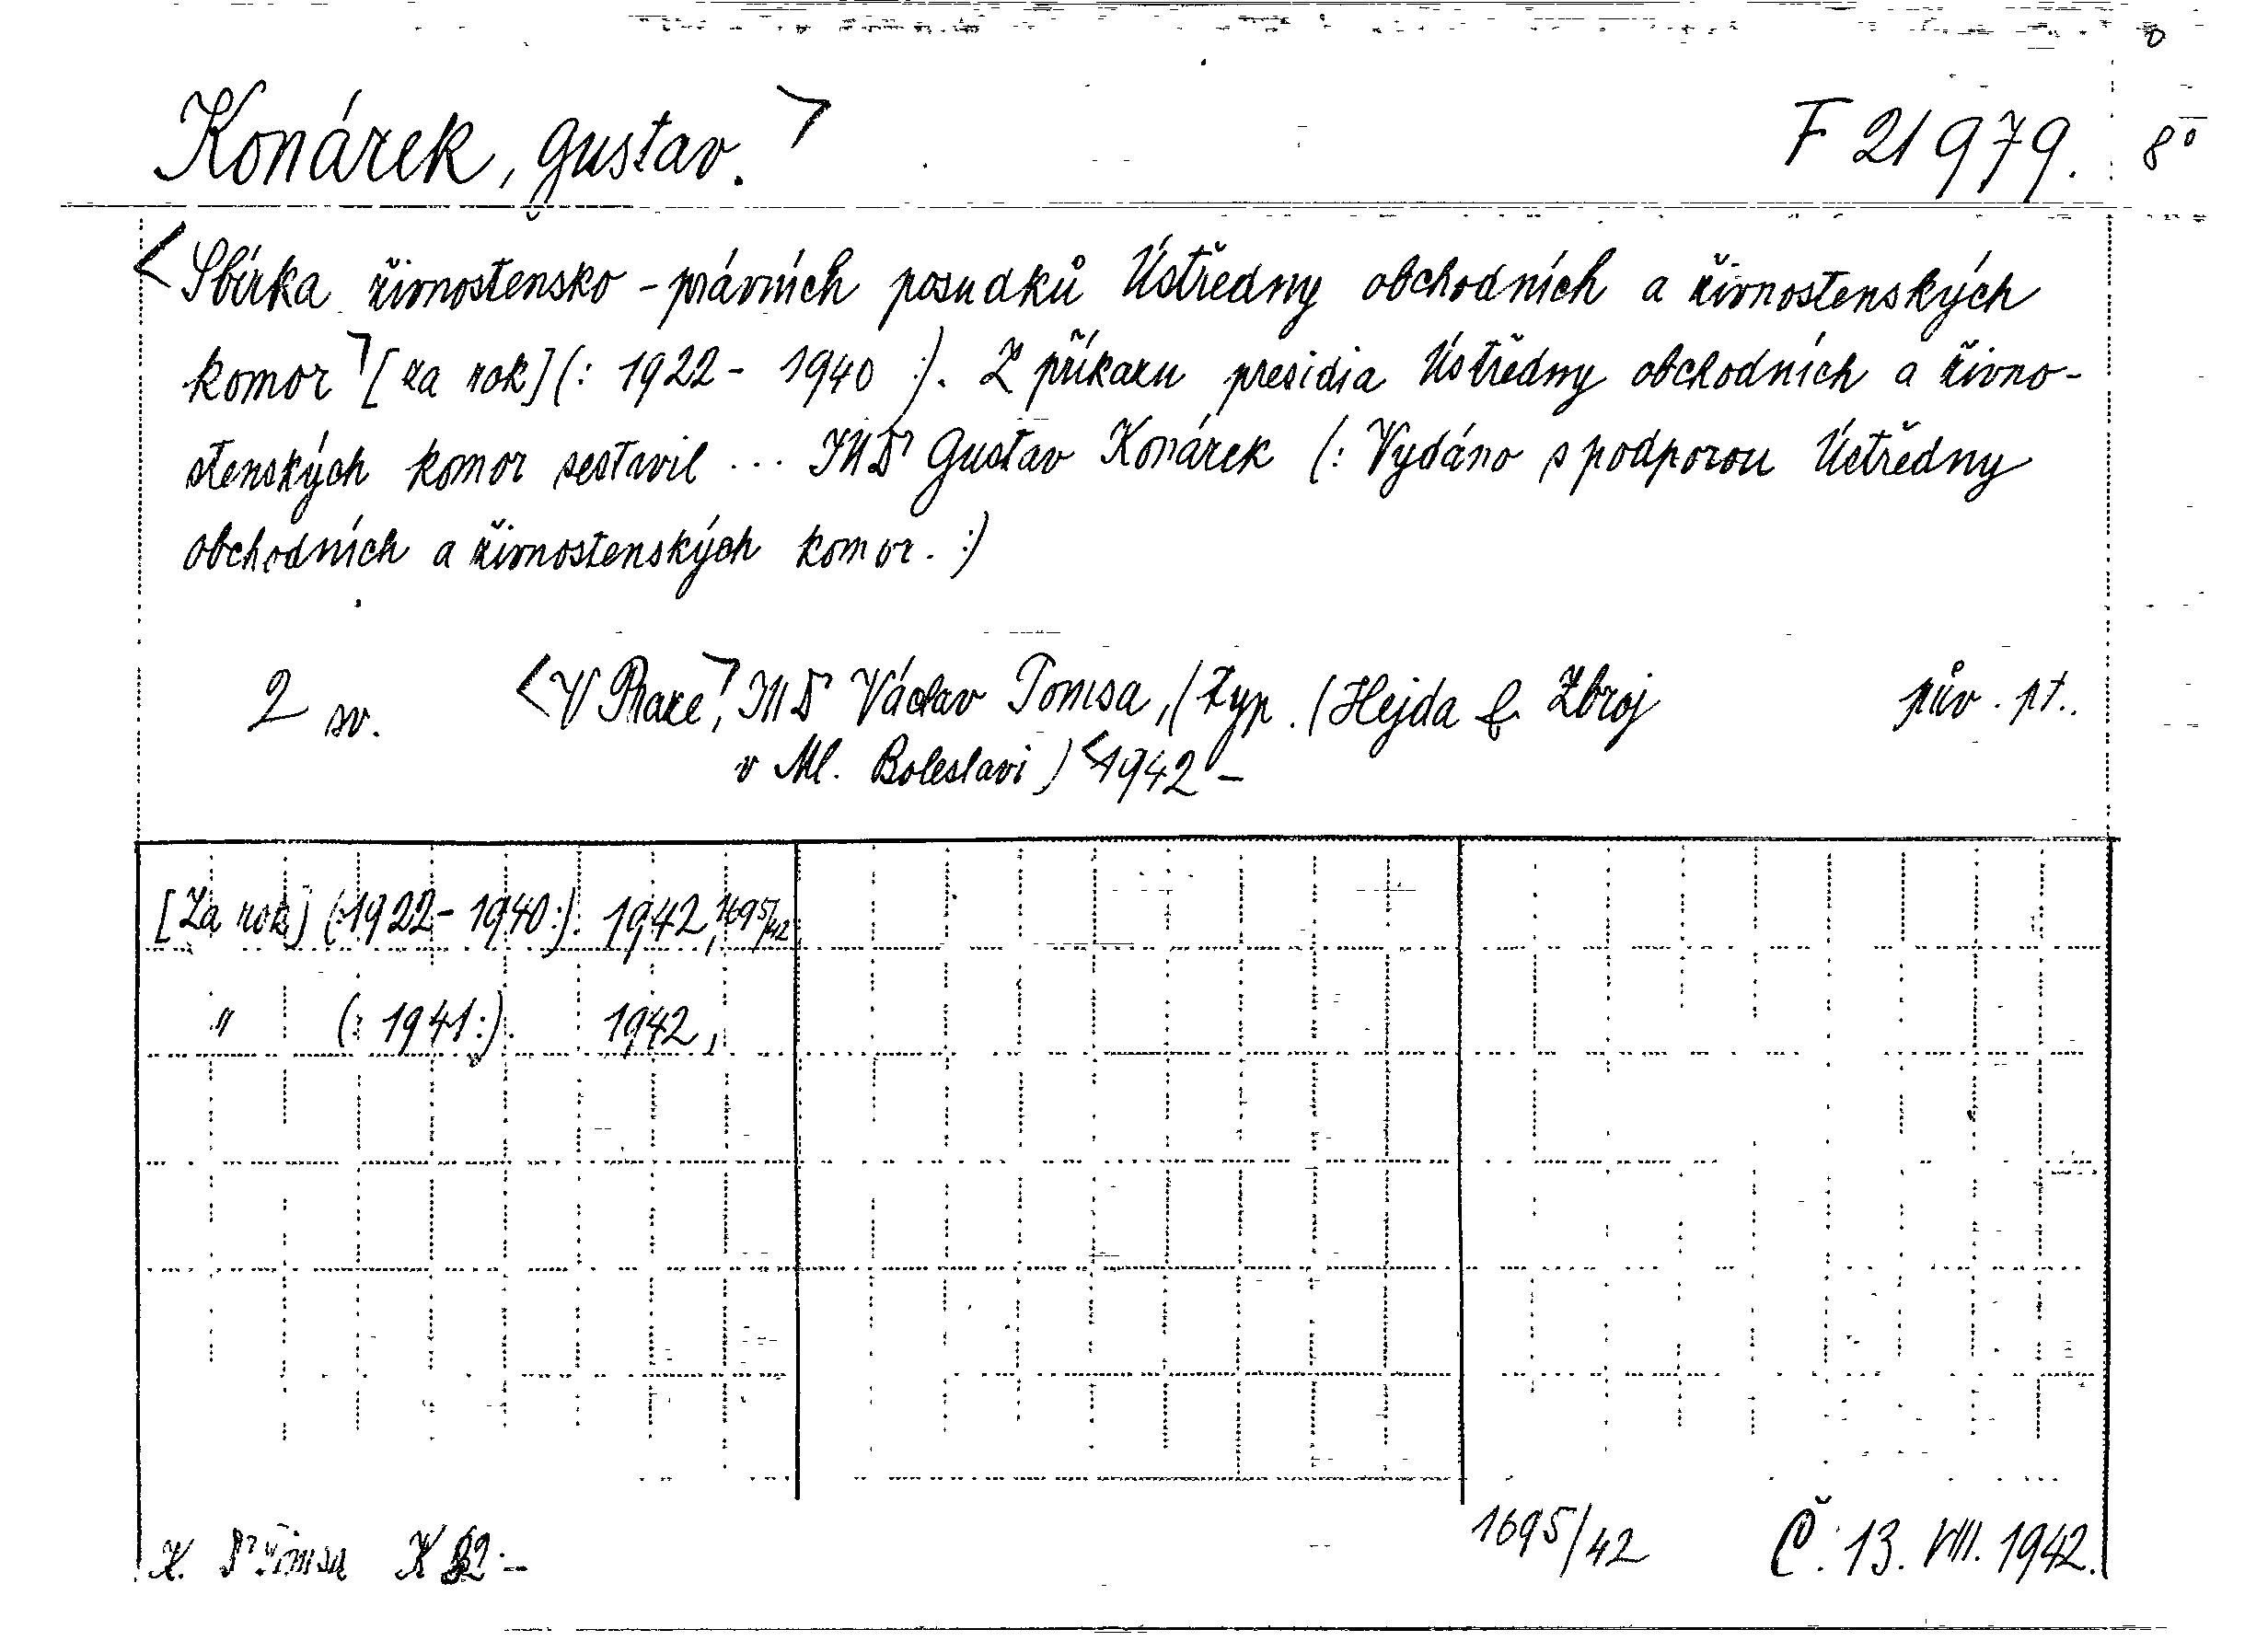 Konárek, Gustav. F 21979. 8°
Sbírka živnostensko-právních posudků Ústředny obchodních a živnostenských
komor [za rok] (: 1922 - 1940 :). Z příkazu presidia Ústředny obchodních a živno-
stenských komor sestavil ... JUDr Gustav Konárek (: Vydáno s podporou Ústředny
obchodních a živnostenských komor. :)
2 sv. <V Praze>, JUDr Václav Tomsa, (Typ. (Hejda & Zbroj pův. pt..
v Ml. Boleslavi) <1942 -
[Za rok] (:1922 - 1940:). 1942, 1695/42
" (: 1941:). 1942,
1695/42 Č. 13. VIII. 1942.
K. Dr Tomsa K